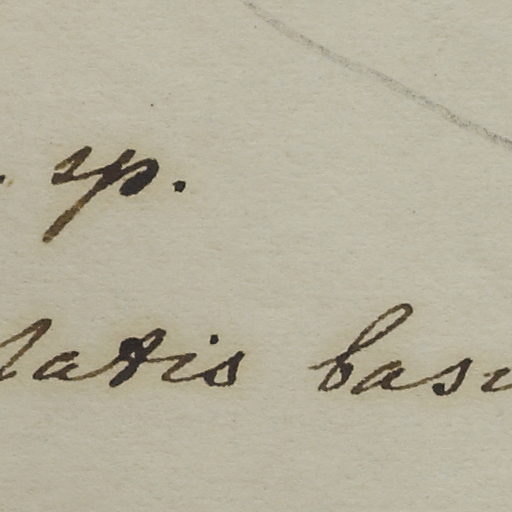 . sp.
latis bas